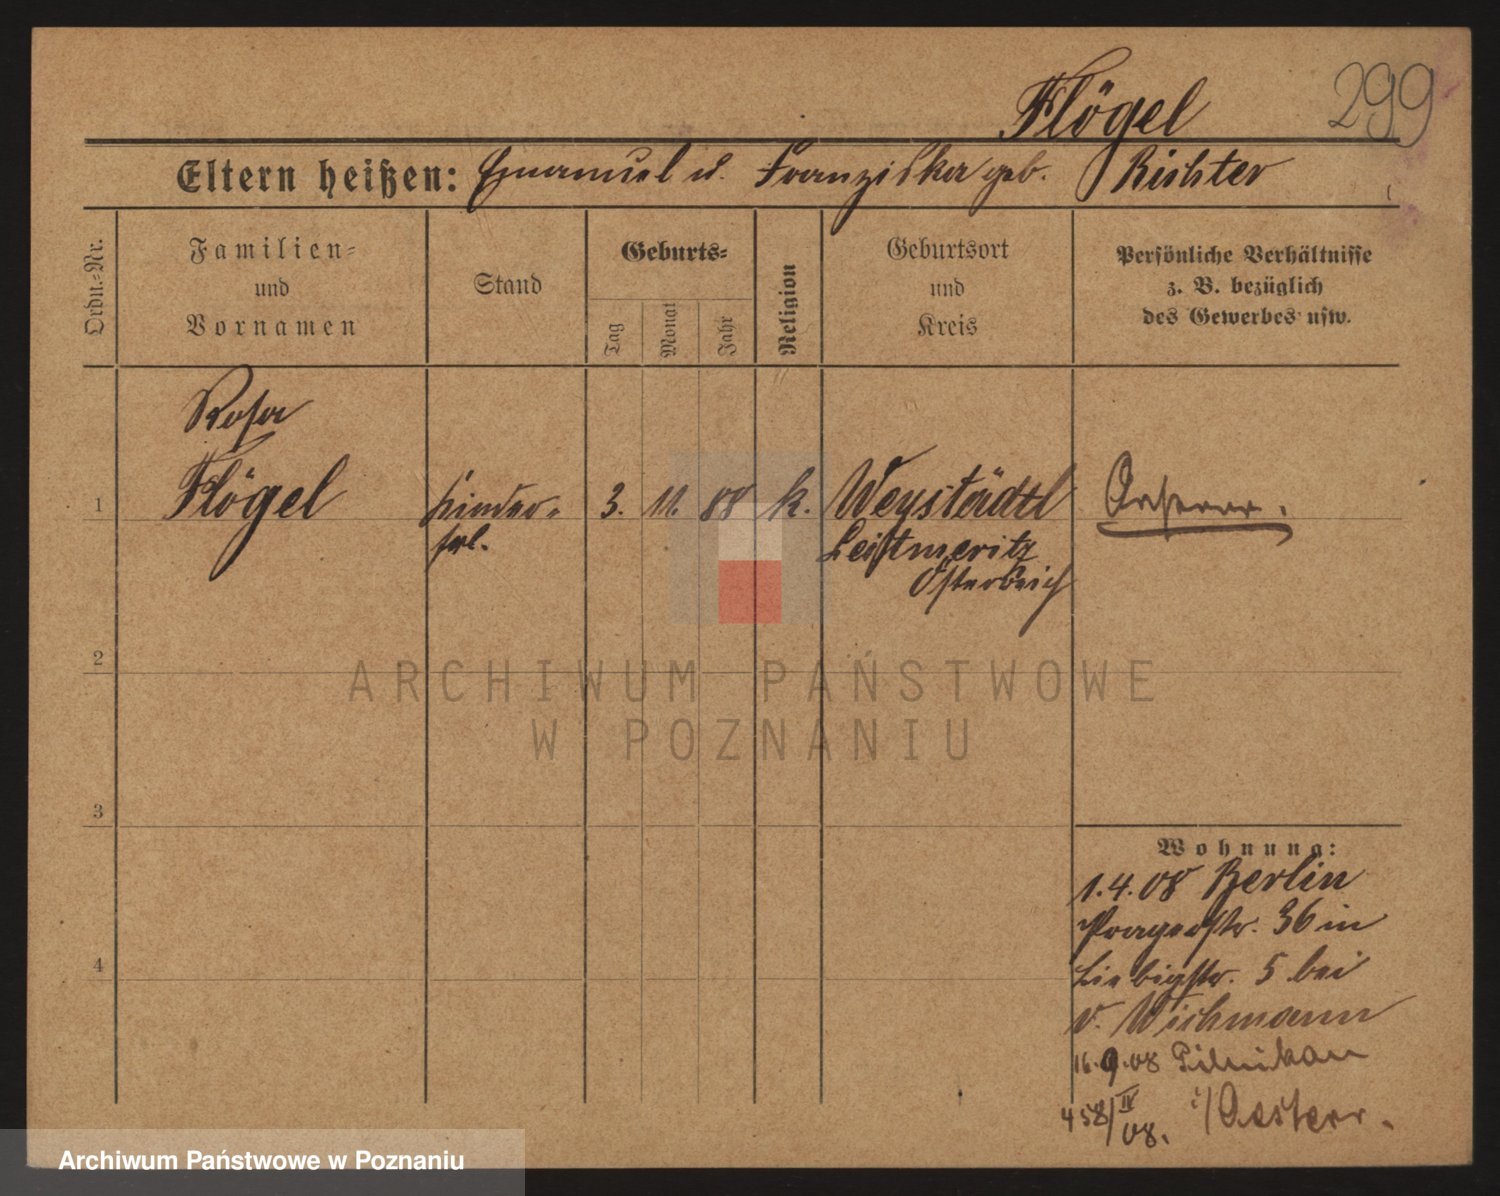 299
Flögel
Eltern heißen: Emanuel u. Franziska geb. Richter
Ordn.-Nr.
Familien=
und
Vornamen
Stand
Geburts=
Tag
Monat
Jahr
Religion
Geburtsort
und
Kreis
Persönliche Verhältnisse
z. B. bezüglich
des Gewerbes usw.
Rosa
1 Flögel Kinder- 3. 11. 88 k. Weystädtl
frl. Leitmeritz
Österreich
2
3
4
Wohnung:
1.4.08 Berlin
Pragerstr. 36 in
Liebigstr. 5 bei
v. Wichmann
16.9.08 Pilnikau
i/Oesterr.
458/IV
08.
ARCHIWUM PAŃSTWOWE
W POZNANIU
Archiwum Państwowe w Poznaniu